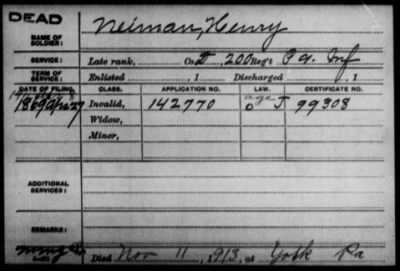 DEAD
NAME OF SOLDIER: Neiman, Henry
SERVICE: Late rank, Co. I, 200 Reg't Pa. Inf
TERM OF SERVICE: Enlisted , 1 Discharged , 1
DATE OF FILING. CLASS. APPLICATION NO. LAW. CERTIFICATE NO.
1869 Apr 27 Invalid, 142770 age J 99308
Widow,
Minor,
ADDITIONAL SERVICES:
REMARKS:
Died Nov 11, 1913, at York Pa